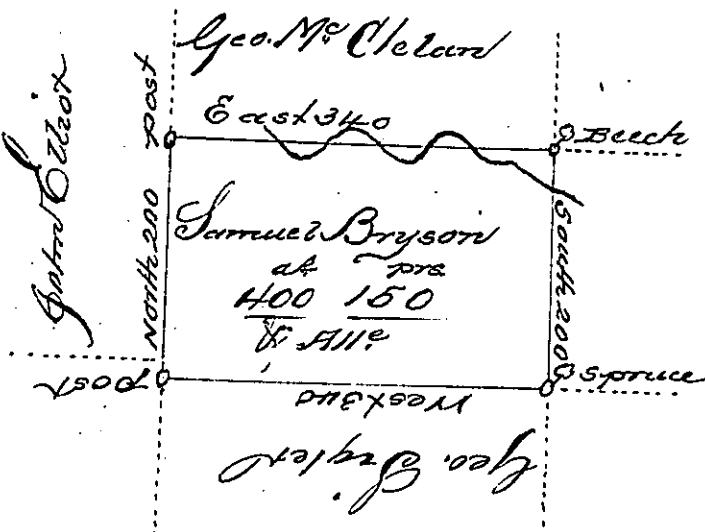 Geo. Mc Clelan
John Elliot
post
East 340
Beech
North 200
Samuel Bryson
as prs
400 150
& Alle
South 200
post
Spruce
West 340
Geo.